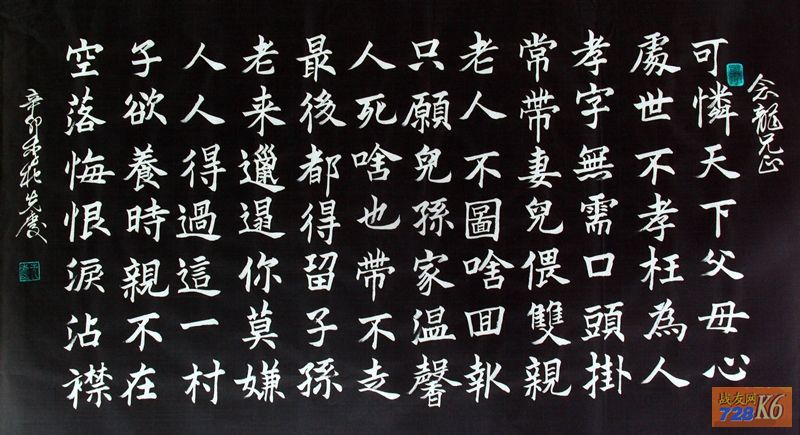 念龍兄正
可憐天下父母心
處世不孝枉為人
孝字無需口頭掛
常帶妻兒偎雙親
老人不圖啥囬報
只願兒孫家温馨
人死啥也帶不走
最後都得留子孫
老来邋遢你莫嫌
人人得過這一村
子欲養時親不在
空落悔恨淚沾襟
辛卯
战友网
728K6